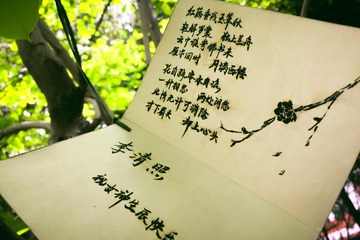 红藕香残玉簟秋
轻解罗裳 独上兰舟
云中谁寄锦书来
雁字回时 月满西楼
花自飘零水自流
一种相思 两处闲愁
此情无计可消除
才下眉头 却上心头
李清照
祝女神生辰快乐